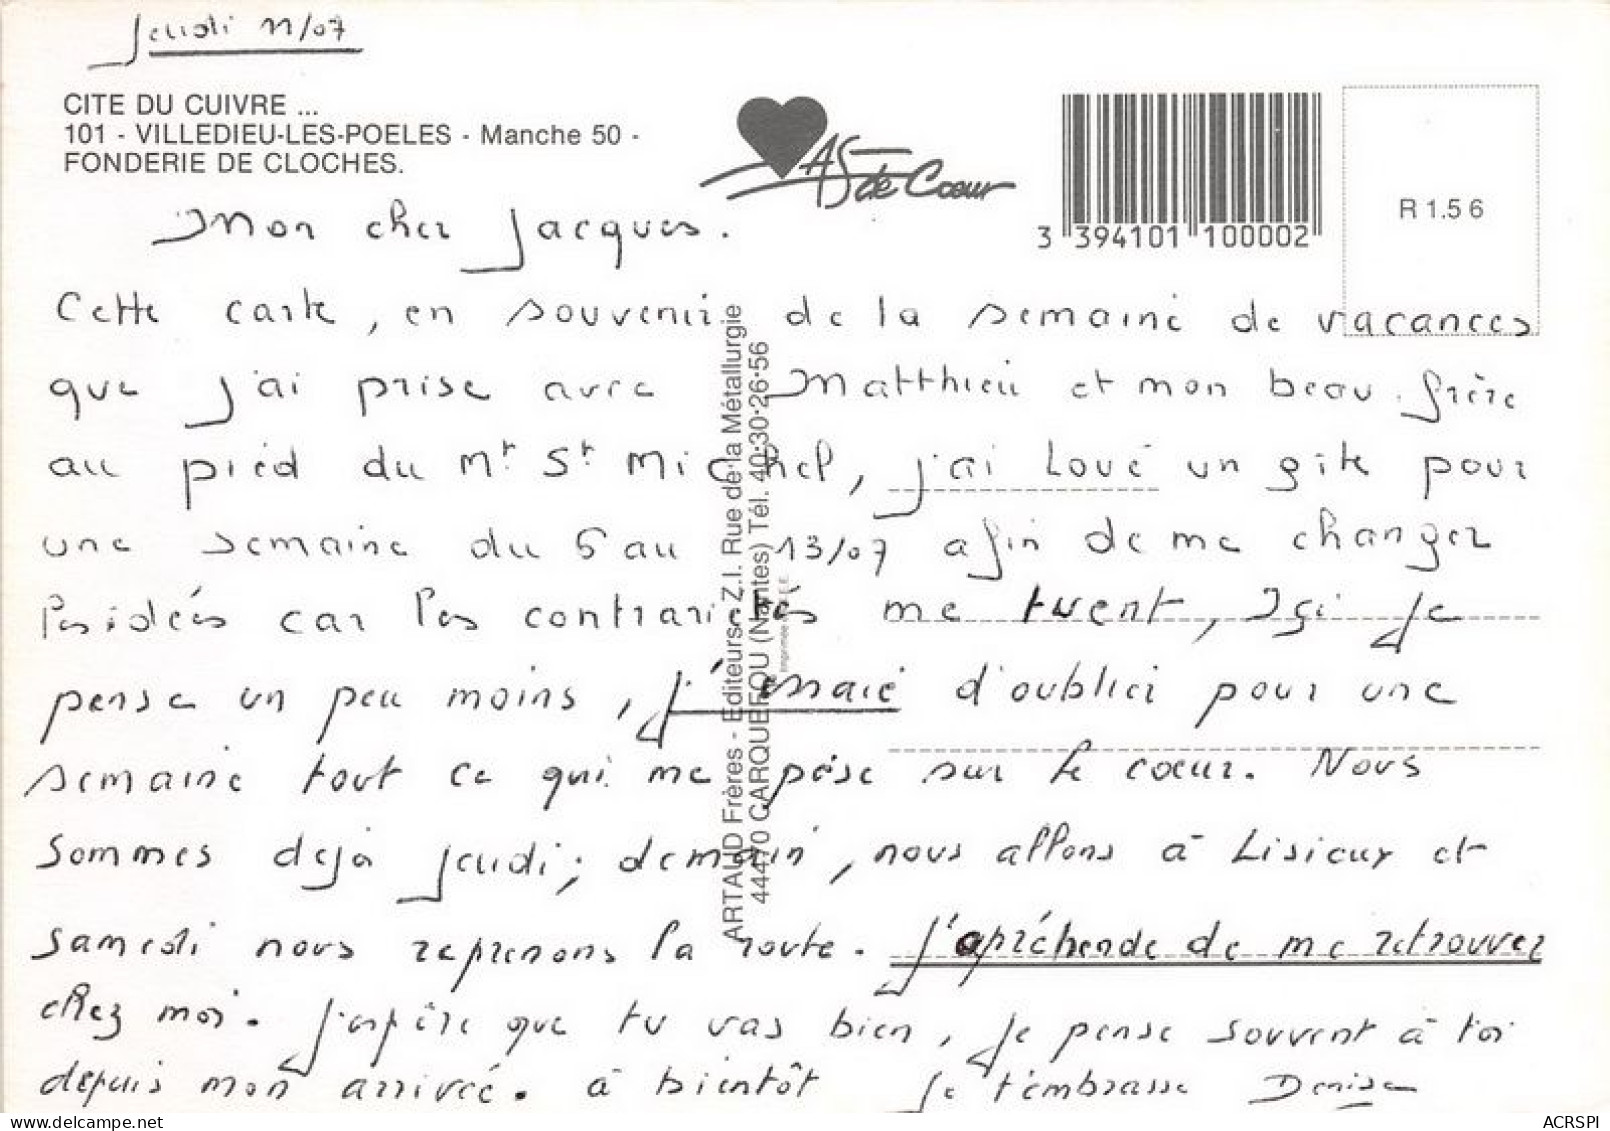 Jeudi 11/07
CITE DU CUIVRE ...
101 - VILLEDIEU-LES-POELES - Manche 50 -
FONDERIE DE CLOCHES.
AS de Coeur
3 394101 100002
R 1.56
Mon cher Jacques.
Cette carte, en souvenir de la semaine de vacances
que j'ai prise avec Matthieu et mon beau-frère
au pied du Mt St Michel, j'ai loué un gîte pour
une semaine du 6 au 13/07 afin de me changer
les idées car les contrariétés me tuent, Ici je
pense un peu moins, j'essaie d'oublier pour une
semaine tout ce qui me pèse sur le coeur. Nous
sommes dejà jeudi; demain, nous allons à Lisieux et
samedi nous reprenons la route. J'apréhende de me retrouver
chez moi. J'espère que tu vas bien, je pense souvent à toi
depuis mon arrivée. à bientôt je t'embrasse Denise
ARTAUD Frères - Editeurs - Z.I. Rue de la Métallurgie
44470 CARQUEFOU (Nantes) Tél. 40·30·26·56
ACRSPI